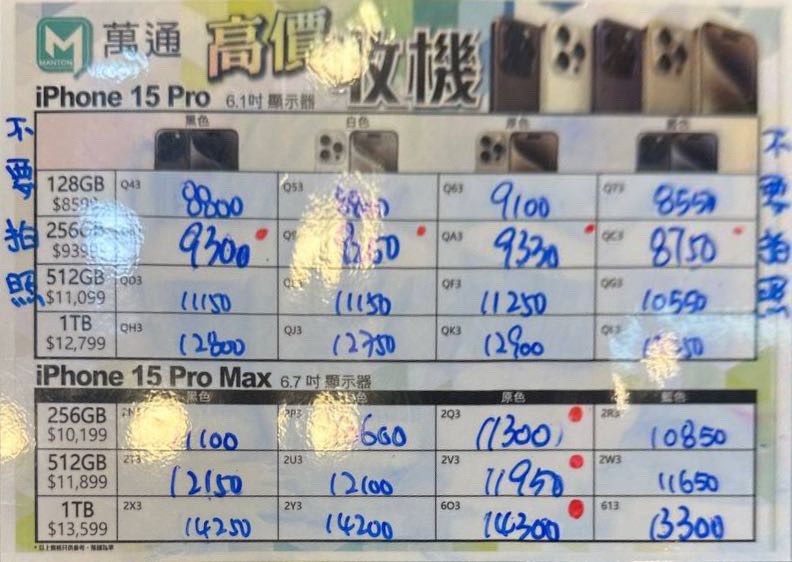 M
MANTON
萬通
高價收機
iPhone 15 Pro 6.1吋 顯示器
黑色 白色 原色 藍色
128GB Q43 8800 Q53 Q63 9100 Q73 8550
256GB 9300 QA3 9330 QC3 8750
512GB QD3 11150 11150 QF3 11250 QG3 10550
$11,099
1TB QH3 12800 QJ3 12750 QK3 12900
$12,799
iPhone 15 Pro Max 6.7 吋 顯示器
黑色 原色 藍色
256GB 2Q3 11300 2R3 10850
$10,199
512GB 2T3 12150 2U3 12100 2V3 11950 2W3 11650
$11,899
1TB 2X3 14250 2Y3 14200 6O3 14300 613 13300
$13,599
*以上價格只供參考，隨舖為準
不要拍照
不要拍照